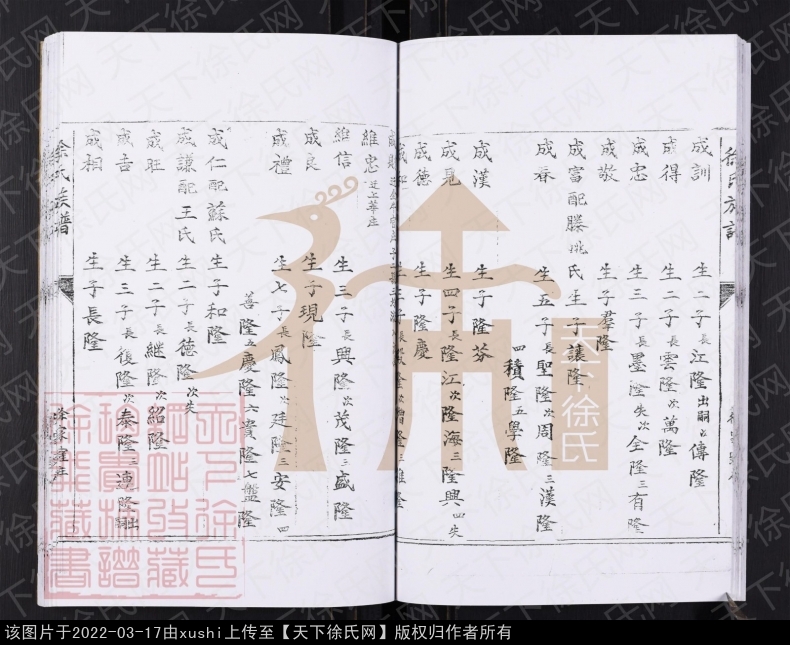 成訓 生二子長江隆出嗣次傳隆
成得 生二子長雲隆次萬隆
成忠 生三子長墨隆失次全隆三有隆
成敬 生子羣隆
成富配滕姚氏生子讓隆
成春 生五子長聖隆次周隆三漢隆
四積隆五學隆
成漢 生子隆芬
成覓 生四子長隆江次隆海三隆興四失
成德 生子隆慶
維忠 遷上華庄
維信 生三子長興隆次茂隆三盛隆
成良 生子現隆
成禮 生七子長鳳隆次廷隆三安隆四
善隆五慶隆六貴隆七盤隆
成仁配蘇氏 生子和隆
成謙配王氏 生二子長德隆次失
成旺 生二子長継隆次紹隆
成吉 生三子長復隆次泰隆三
成相 生子長隆
徐氏族譜
天下徐氏
天下徐氏网
该图片于2022-03-17由xushi上传至【天下徐氏网】版权归作者所有